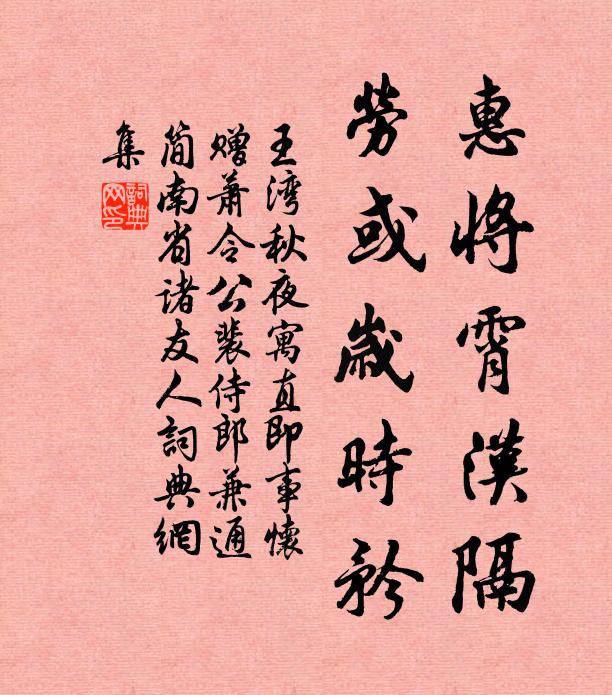 惠將霄漢隔
勞或歲時矜
王湾秋夜寓直即事懷
赠蕭令公裴侍郎兼通
简南省诸友人詞典網
集
詞典
网印